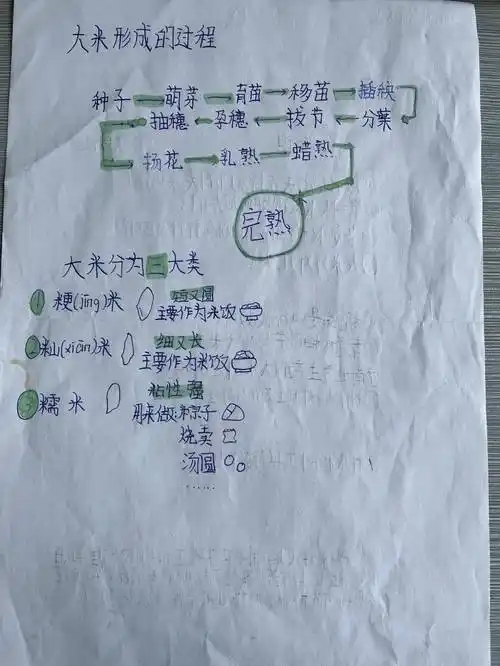 大米形成的过程
种子 萌芽 → 育苗 → 移苗 插秧
抽穗 ← 孕穗 ← 拔节 ← 分葉
扬花 → 乳熟 → 蜡熟
完熟
大米分为三大类
① 粳(jīng)米 短又圆
主要作为米饭
② 籼(xiān)米 细又长
主要作为米饭
③ 糯米 粘性强
用来做:粽子
烧卖
汤圆
......